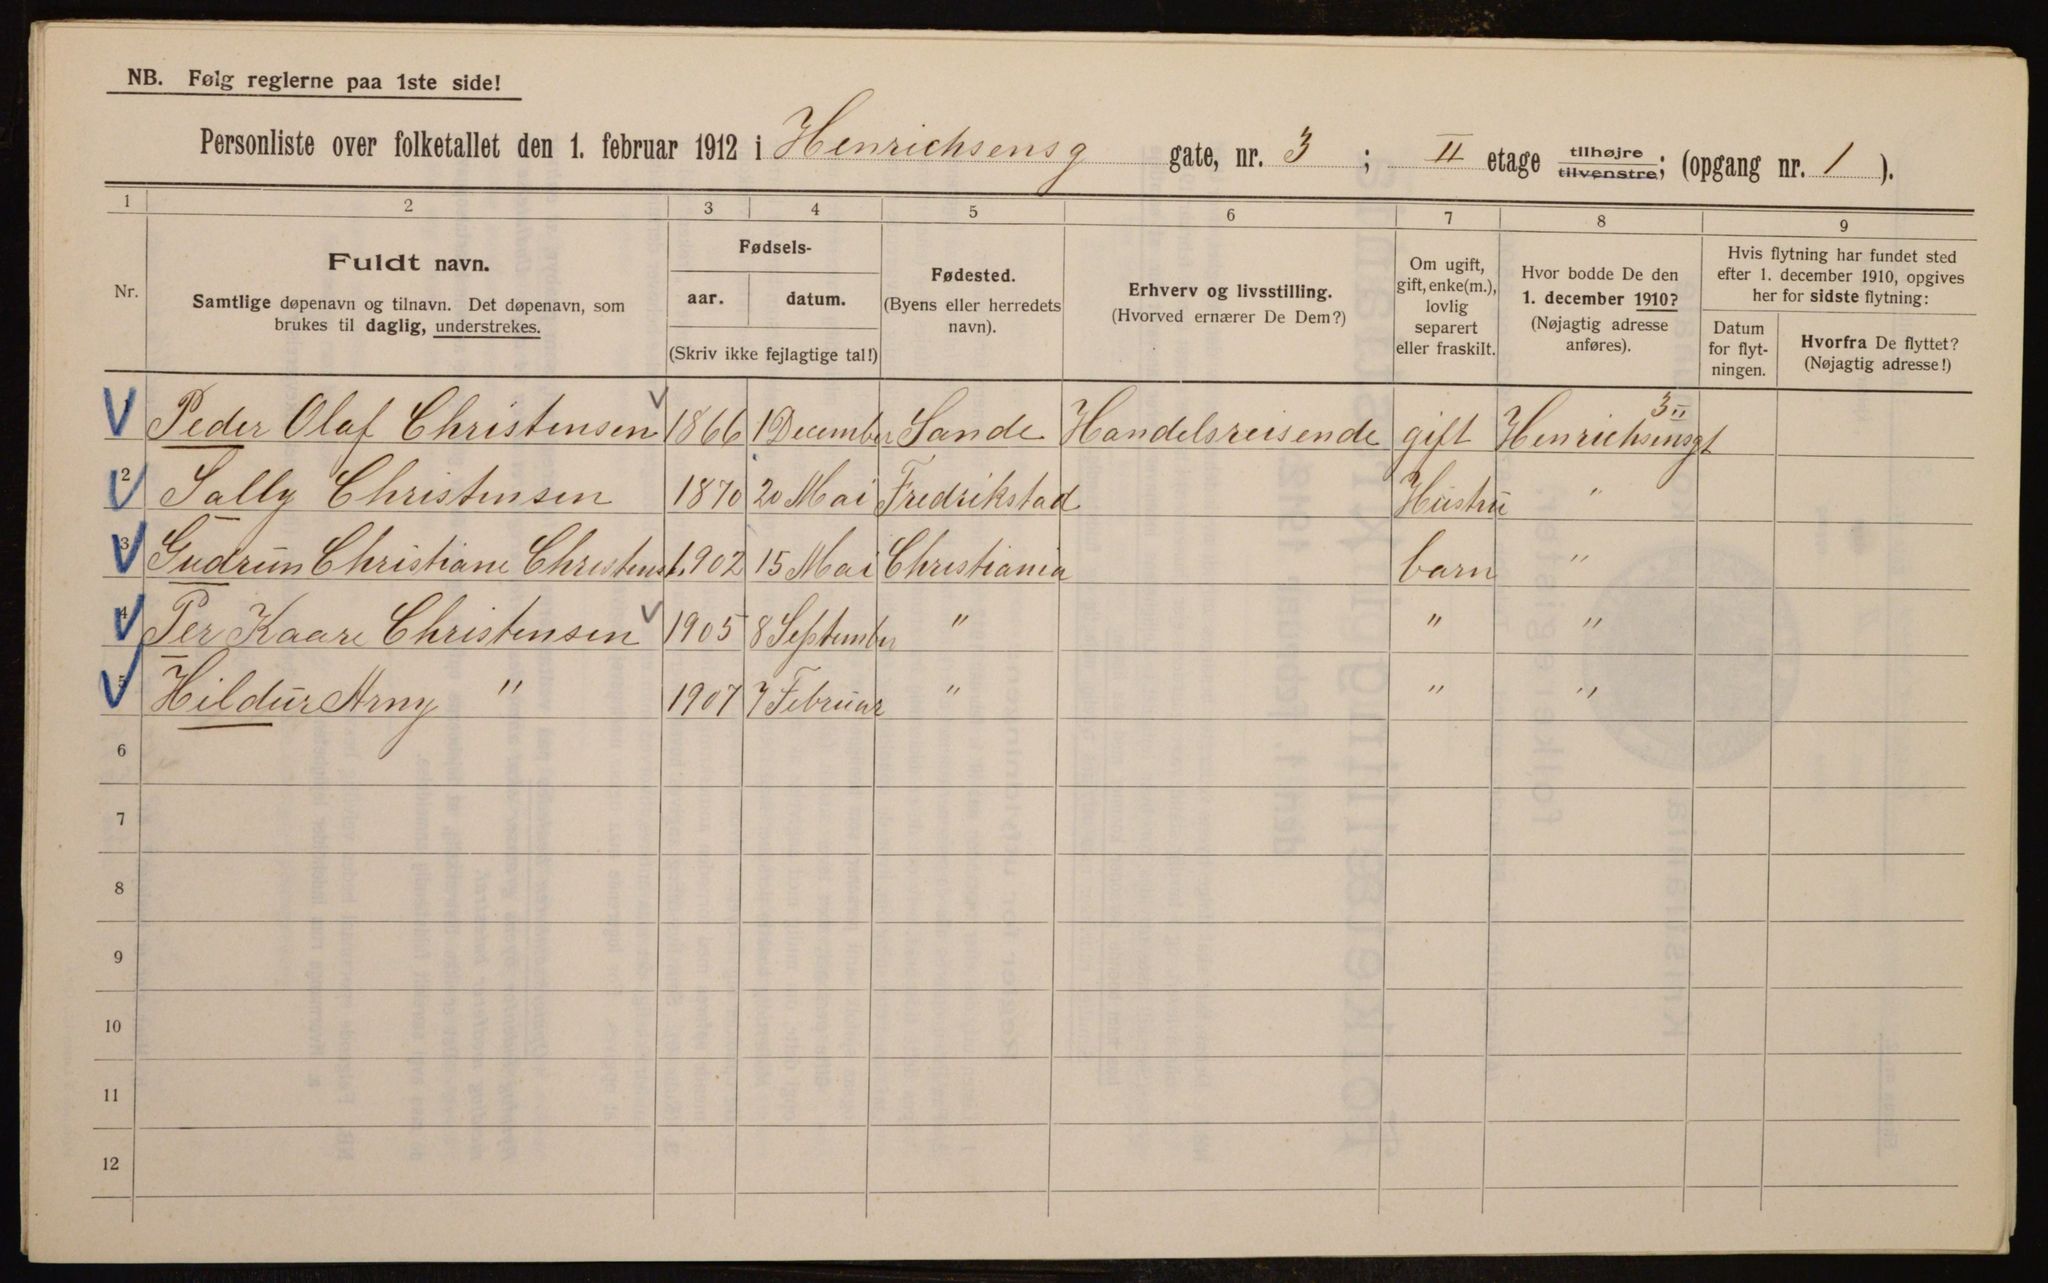 NB. Følg reglerne paa 1ste side!
Personliste over folketallet den 1. februar 1912 i Henrichsensg gate, nr. 3 ; II etage tilhøjre tilvenstre; (opgang nr. 1 ).
1 2 3 4 5 6 7 8 9
Nr.
Fuldt navn.
Samtlige døpenavn og tilnavn. Det døpenavn, som
brukes til daglig, understrekes.
Fødsels-
aar. datum.
(Skriv ikke fejlagtige tal!)
Fødested.
(Byens eller herredets
navn).
Erhverv og livsstilling.
(Hvorved ernærer De Dem?)
Om ugift,
gift, enke(m.),
lovlig
separert
eller fraskilt.
Hvor bodde De den
1. december 1910?
(Nøjagtig adresse
anføres).
Hvis flytning har fundet sted
efter 1. december 1910, opgives
her for sidste flytning:
Datum
for flyt-
ningen.
Hvorfra De flyttet?
(Nøjagtig adresse!)
Peder Olaf Christensen 1866 1 December Sande Handelsreisende gift Henrichsensgt 3 II
2 Sally Christensen 1870 20 Mai Fredrikstad Hustru "
3 Gudrun Christiane Christens. 1902 15 Mai Christiania barn "
4 Per Kaare Christensen 1905 8 September " " "
5 Hildur Arny " 1907 7 Februar " " "
6
7
8
9
10
11
12